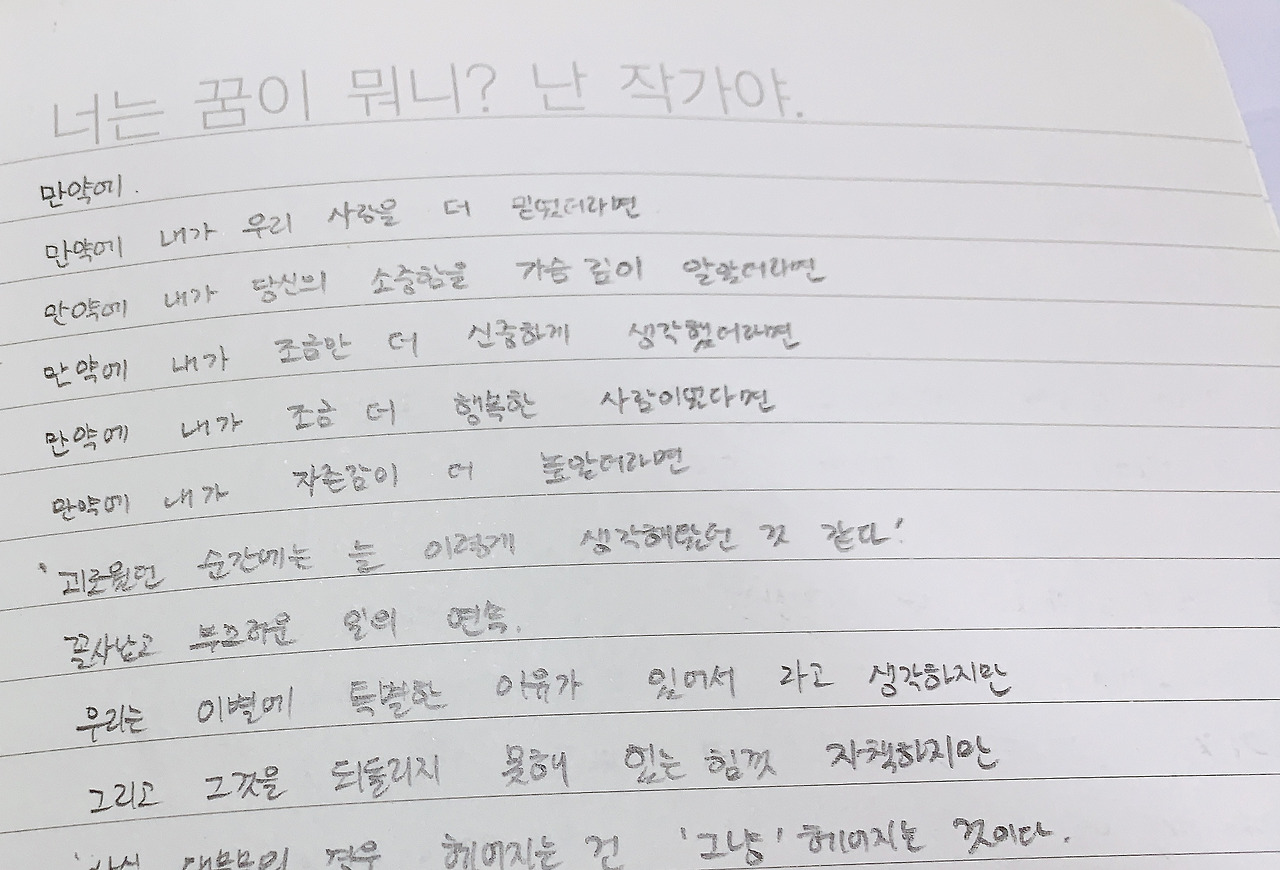 너는 꿈이 뭐니? 난 작가야.
만약에.
만약에 내가 우리 사랑을 더 믿었더라면
만약에 내가 당신의 소중함을 가슴 깊이 알았더라면
만약에 내가 조금만 더 신중하게 생각했더라면
만약에 내가 조금 더 행복한 사람이었다면
만약에 내가 자존감이 더 높았더라면
'괴로웠던 순간에는 늘 이렇게 생각해왔던 것 같다.'
꼴사납고 부끄러운 일의 연속.
우리는 이별에 특별한 이유가 있어서 라고 생각하지만
그리고 그것을 되돌리지 못해 있는 힘껏 자책하지만
'사실 대부분의 경우 헤어지는 건 '그냥' 헤어지는 것이다.